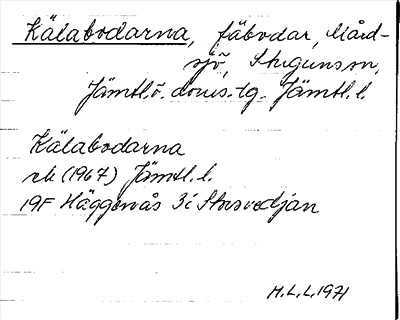 Kälabodarna, fäbodar, Mård-
sjö, Stugun sn,
Jämtl.ö. doms.tg. Jämtl.l.
Kälabodarna
ek (1967) Jämtl.l.
19F Häggenås 3i Storsvedjan
M.L.L. 1971